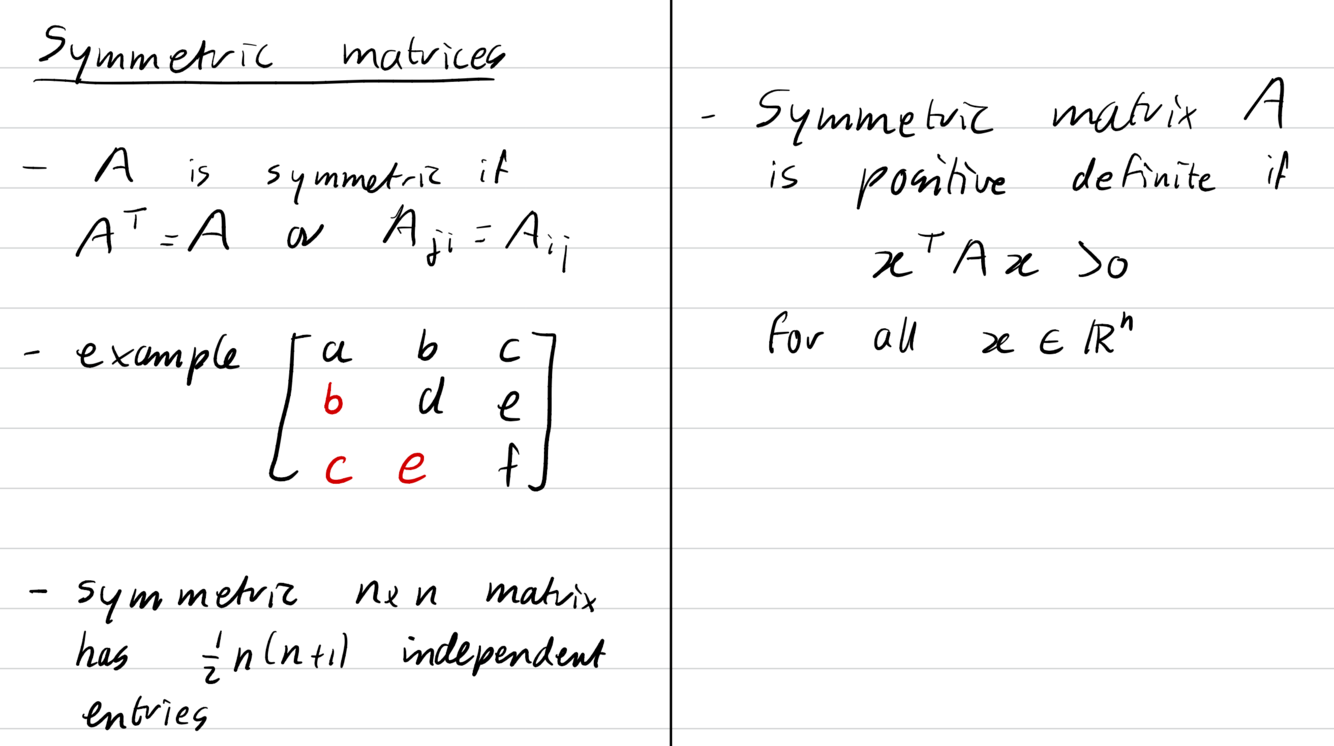 Symmetric matrices
- A is symmetric if
Aᵀ = A or Aⱼᵢ = Aᵢⱼ
- example [ a b c
b d e
c e f ]
- symmetric n x n matrix
has ½ n(n+1) independent
entries
- Symmetric matrix A
is positive definite if
xᵀ A x > 0
for all x ∈ ℝⁿ